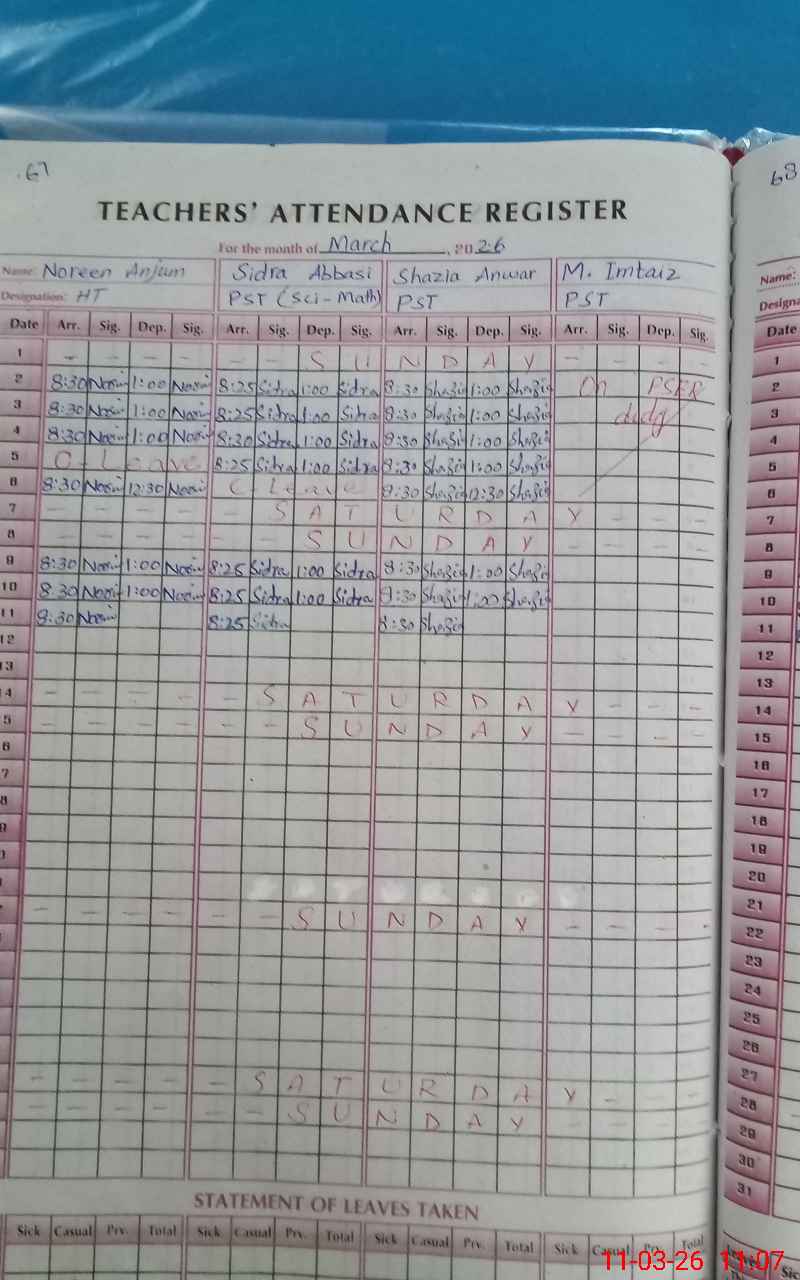 67
68
TEACHERS' ATTENDANCE REGISTER
For the month of March, 2026
Name: Noreen Anjum Sidra Abbasi Shazia Anwar M. Imtaiz Name:
Designation: HT PST (Sci-Math) PST PST Designa
Date Arr. Sig. Dep. Sig. Arr. Sig. Dep. Sig. Arr. Sig. Dep. Sig. Arr. Sig. Dep. Sig. Date
1 - - - - - - S U N D A Y - - - - 1
2 8:30 1:00 8:25 Sidra 1:00 Sidra 8:30 Shazia 1:00 Shazia On 2
3 8:30 1:00 8:25 Sidra 1:00 Sidra 8:30 Shazia 1:00 Shazia duty 3
4 8:30 1:00 8:30 Sidra 1:00 Sidra 8:30 Shazia 1:00 Shazia 4
5 C - Leave 8:25 Sidra 1:00 Sidra 8:30 Shazia 1:00 Shazia 5
6 8:30 12:30 C - Leave 8:30 Shazia 12:30 Shazia 6
7 - - - - - S A T U R D A Y - - - 7
8 - - - - - - S U N D A Y - - - - 8
9 8:30 1:00 8:25 Sidra 1:00 Sidra 8:30 Shazia 1:00 Shazia 9
10 8:30 1:00 8:25 Sidra 1:00 Sidra 8:30 Shazia 1:00 Shazia 10
11 8:30 8:25 Sidra 8:30 Shazia 11
12 12
13 13
4 - - - - - S A T U R D A Y - - - 14
5 - - - - - - S U N D A Y - - - - 15
6 16
7 17
8 18
9 19
20
21
- - - - - - S U N D A Y - - - - 22
23
24
25
26
27
- - - - - S A T U R D A Y - - - 28
- - - - - - S U N D A Y - - - - 29
30
31
STATEMENT OF LEAVES TAKEN
Sick Casual Prv. Total Sick Casual Prv. Total Sick Casual Prv. Total Sick Casual Prv. Total
11-03-26 11:07